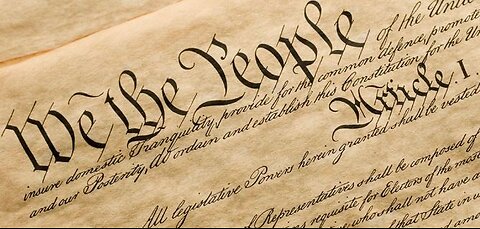 We the People of the Unit
insure domestic Tranquility, provide for the common defence, promote
and our Posterity, do ordain and establish this Constitution for the Uni
Article. I.
All legislative Powers herein granted shall be vested
of Representatives shall be composed of
requisite for Electors of the most
who shall not have a
of that State in w